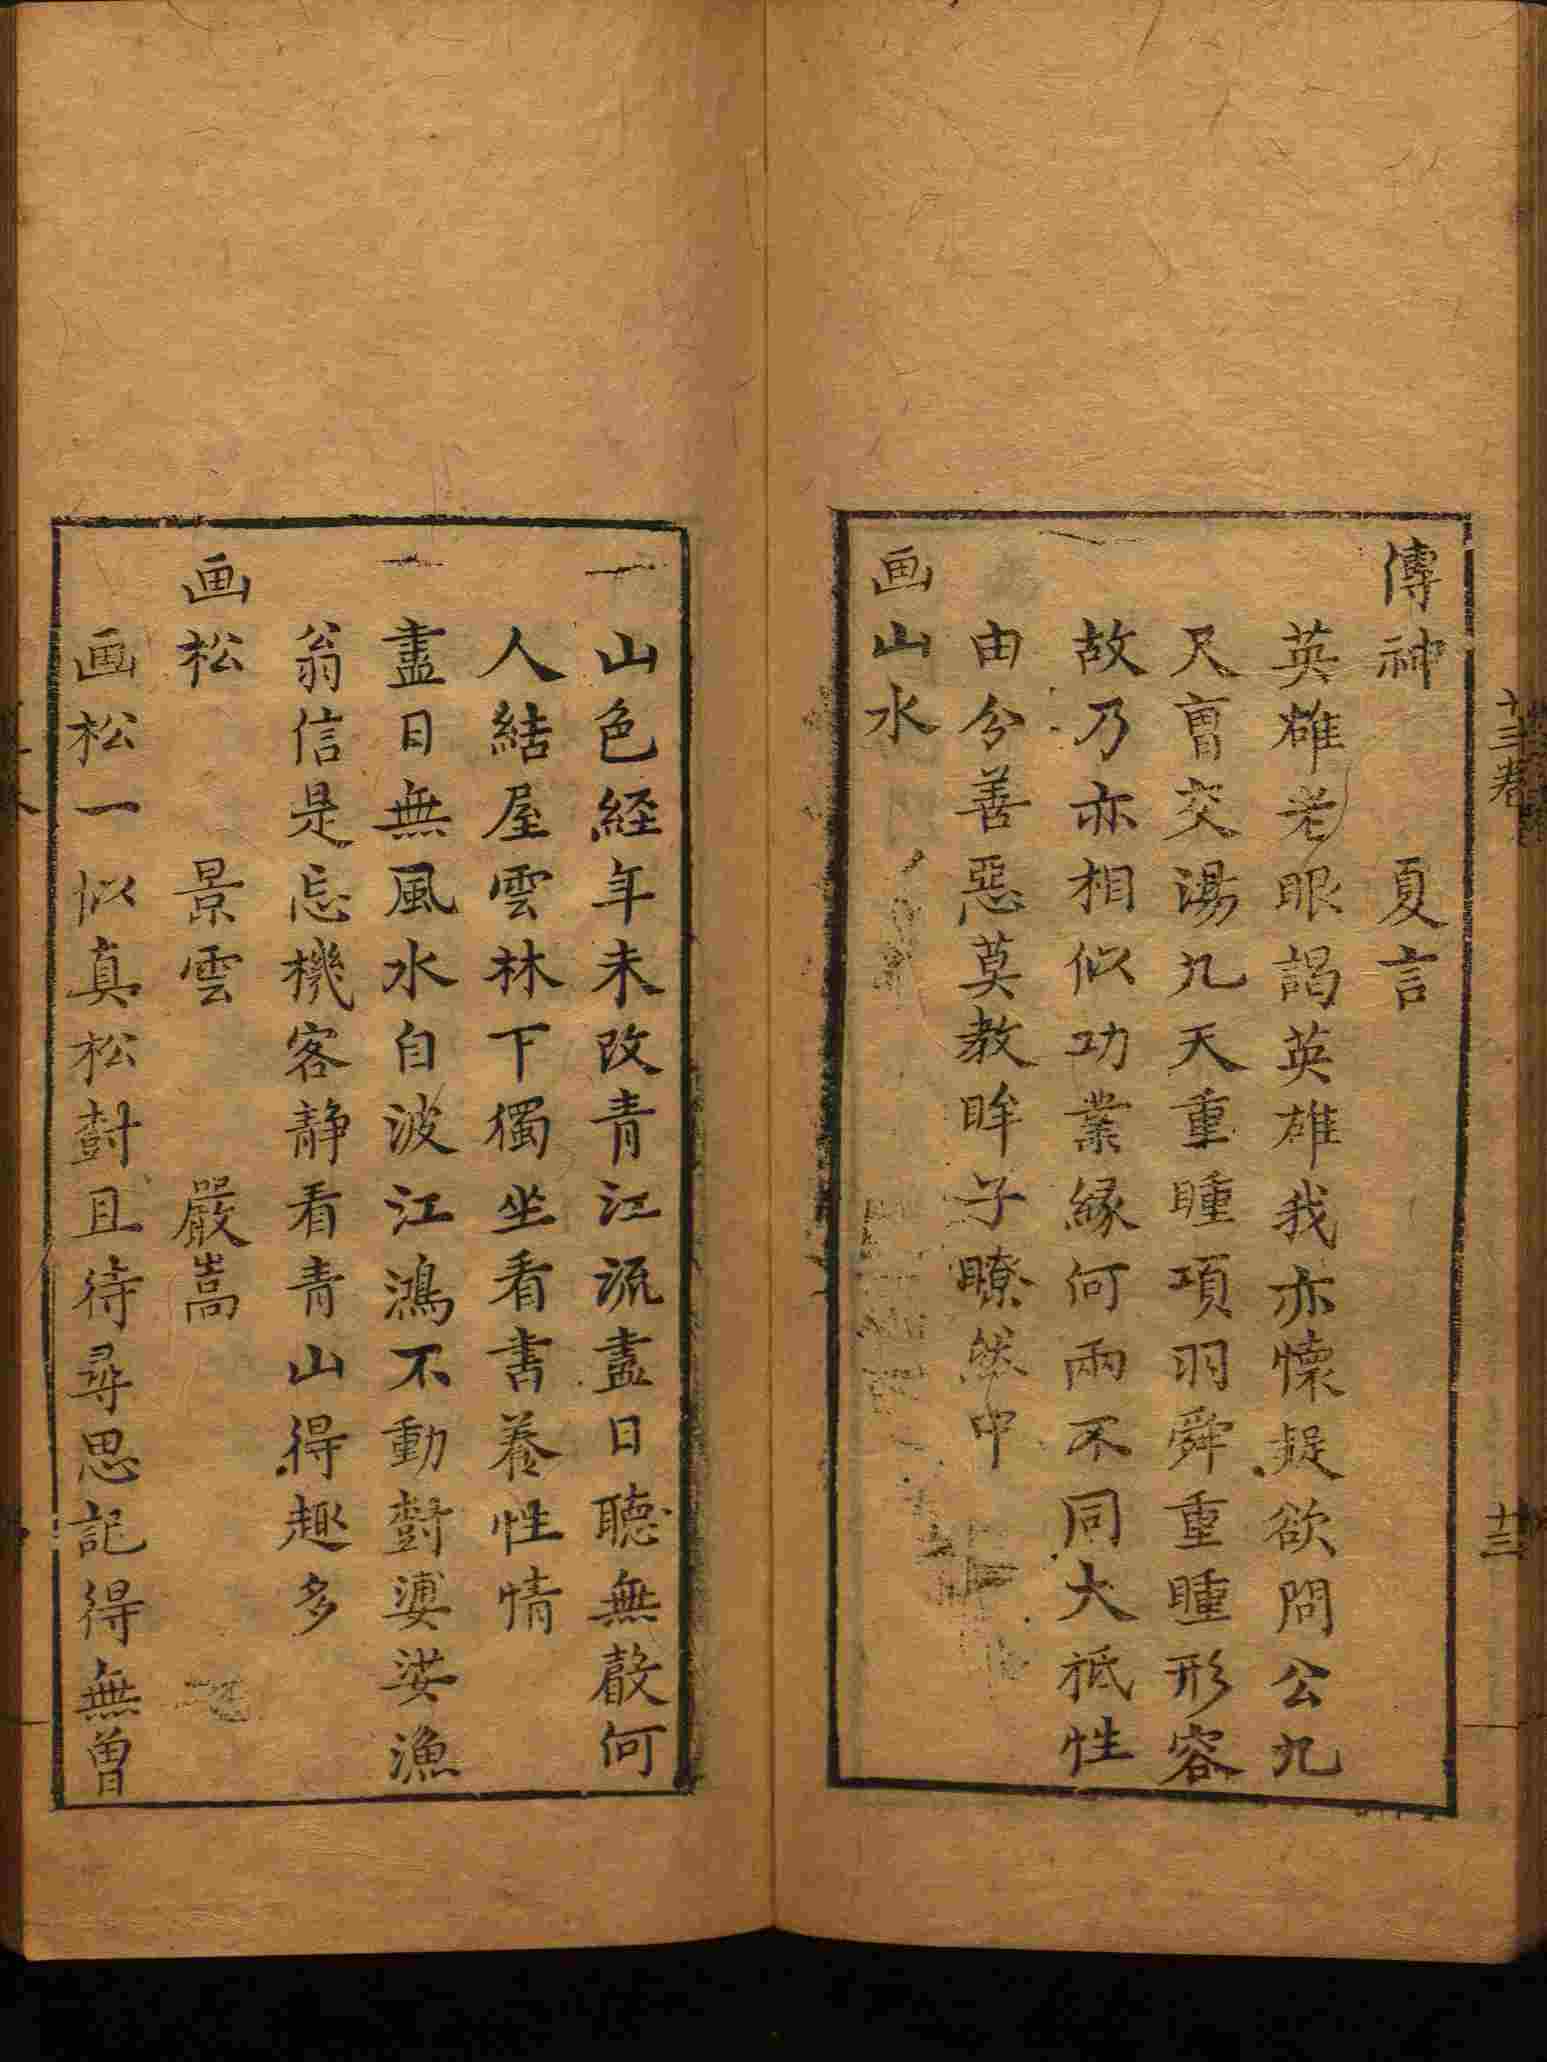 傳神　夏言
英雄老眼謁英雄我亦懷疑欲問公九
尺曺交湯九天重瞳項羽舜重瞳形容
故乃亦相似功業緣何兩不同大祗性
由分善惡莫教眸子瞭然中
画山水
一山色経年未改青江流盡日聽無聲何
人結屋雲林下獨坐看書養性情
一盡日無風水自波江鴻不動對婆娑漁
翁信是忘機客静看青山得趣多
画松　景雲　嚴嵩
画松一似真松對且待尋思記得無曽
十三卷
十三